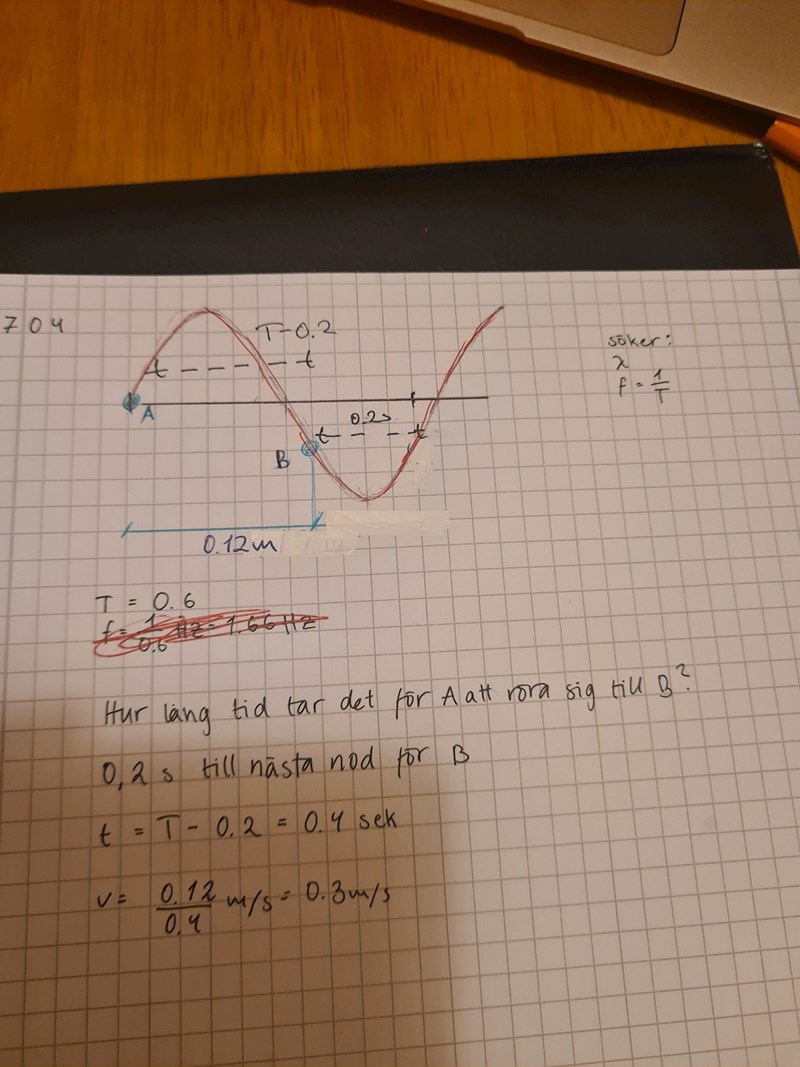 704
T-0.2
t t
söker:
λ
f = 1/T
A
0.2s
t t
B
0.12m
T = 0.6
f = 1/0.6 Hz = 1.66 Hz
Hur lång tid tar det för A att röra sig till B?
0,2 s till nästa nod för B
t = T - 0.2 = 0.4 sek
v = 0.12/0.4 m/s = 0.3m/s